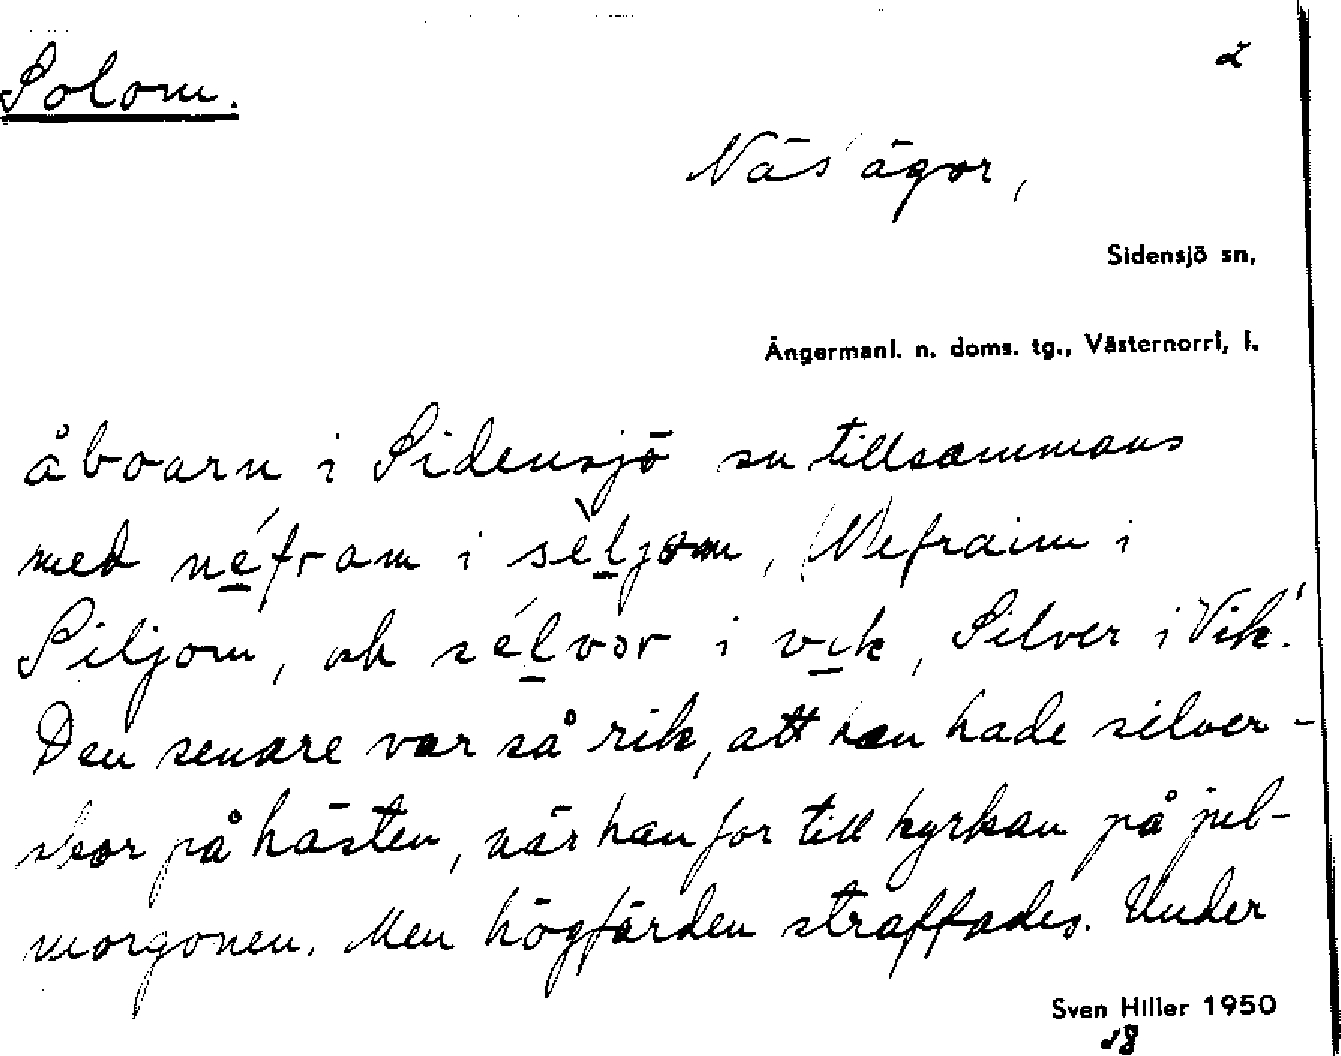 Solom.
2
Näs' ägor,
Sidensjö sn,
Ångermanl. n. doms. tg., Västernorrl, l.
åboarn i Sidensjö sn tillsammans
med néfram i sèljom, (Nefraim i
Siljom, och sélvor i vik, Silver i Vik.'
Den senare var så rik, att han hade silver-
skor på hästen, när han for till kyrkan på jul-
morgonen. Men högfärden straffades. Under
Sven Hiller 1950
18